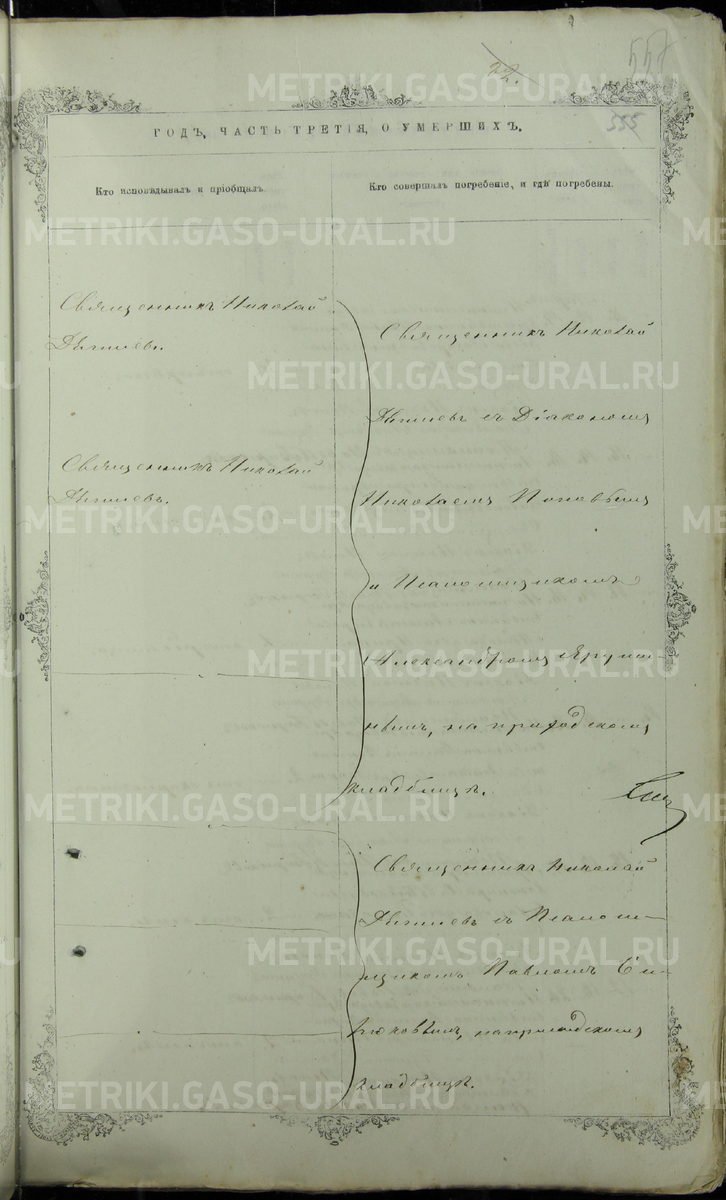 22.
557
555
ГОДЪ, ЧАСТЬ ТРЕТІЯ, О УМЕРШИХЪ.
Кто исповѣдывалъ и пріобщалъ.
Кто совершалъ погребеніе, и гдѣ погребены.
Священникъ Николай
Священникъ Николай
Священникъ Николай
съ Діакономъ
Николаемъ Поповымъ
и Псаломщикомъ
Александромъ
нымъ, на приходскомъ
кладбищѣ.
Священникъ Николай
съ Псаломщикомъ
щикомъ Павломъ
на приходскомъ
кладбищѣ.
METRIKI.GASO-URAL.RU